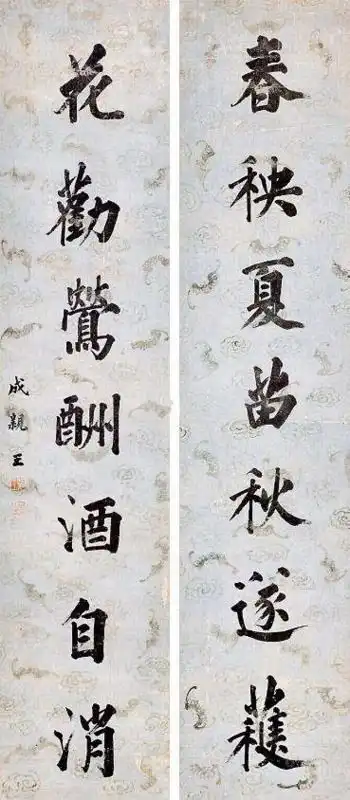 春秧夏苗秋遂穫
花勸鶯酬酒自消
成親王